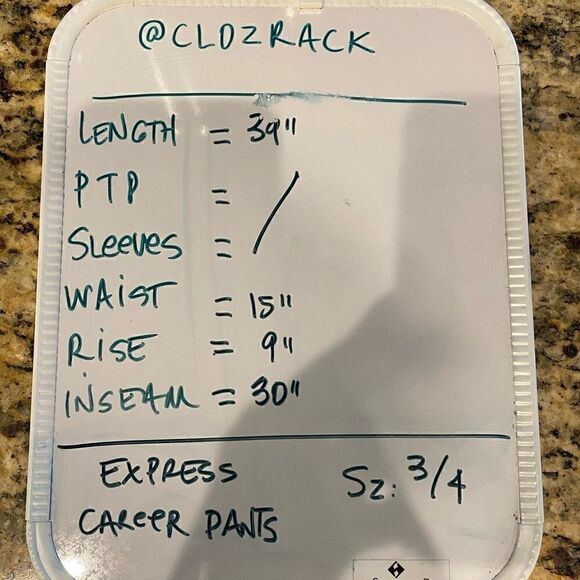 @CLOZRACK
LENGTH = 39"
PTP =
SLEEVES = /
WAIST = 15"
RISE = 9"
INSEAM = 30"
EXPRESS
CAREER PANTS
Sz: 3/4